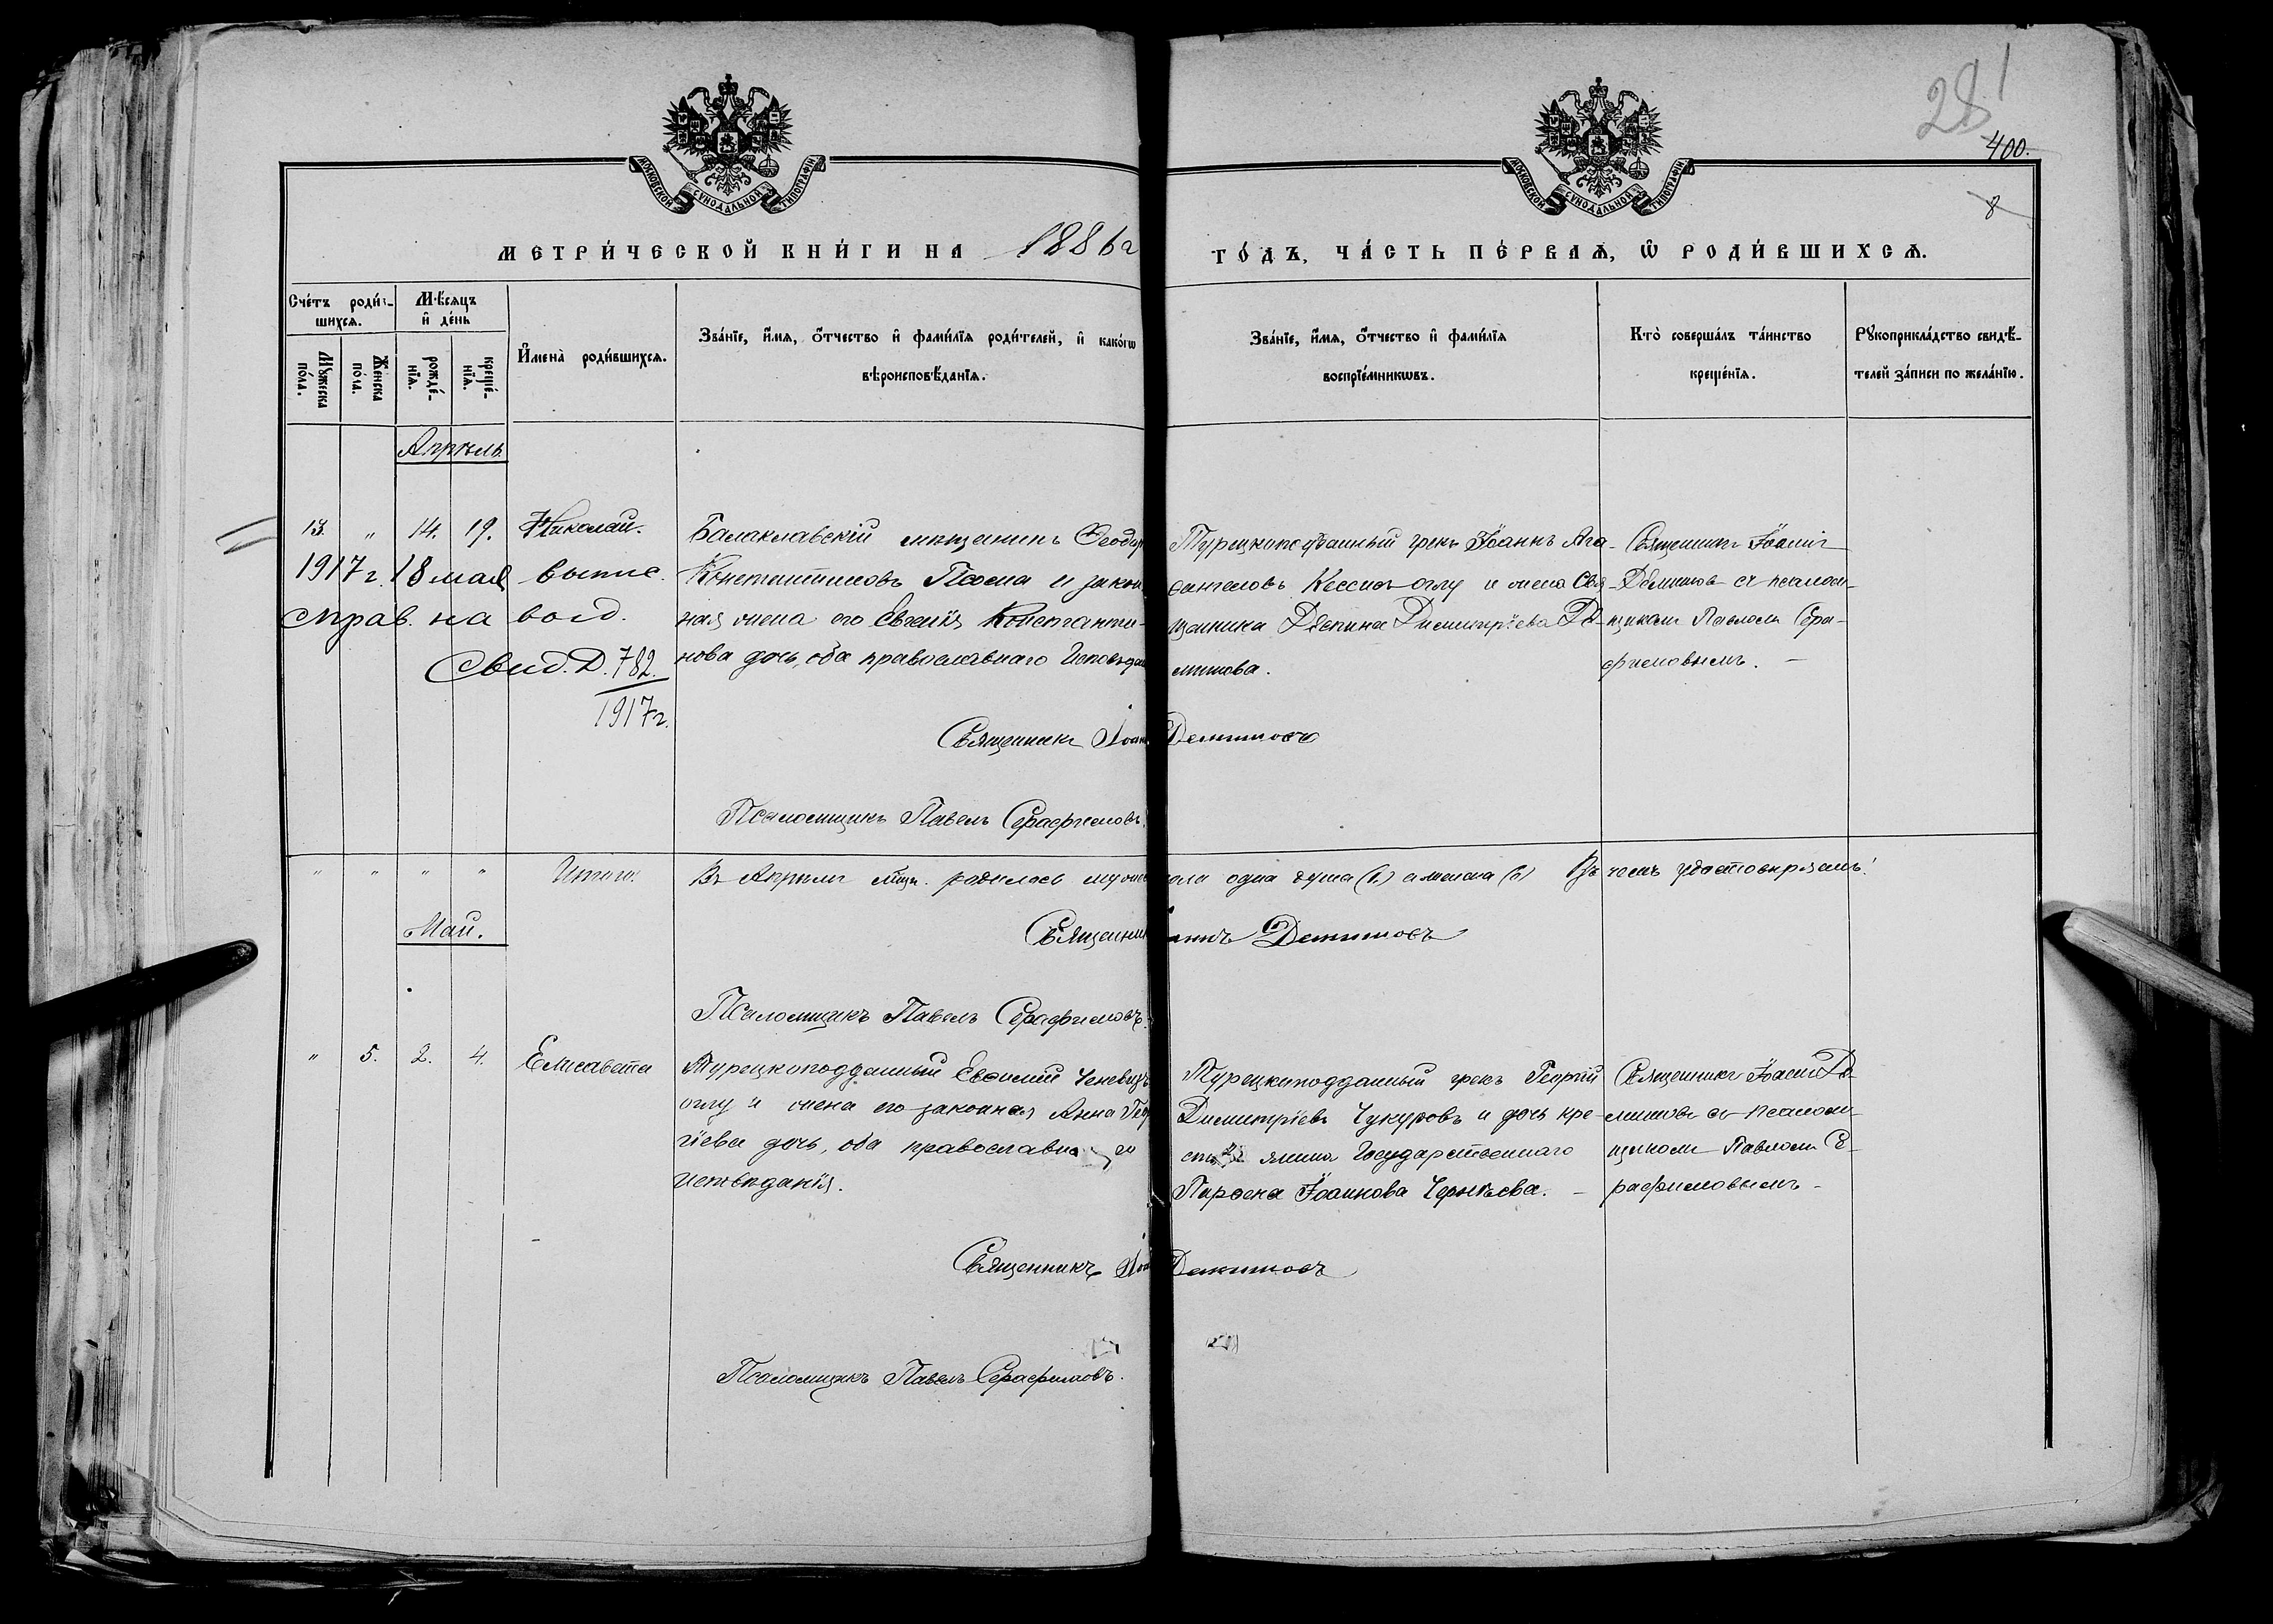 281
400.
8
МОСКОВСКОЙ СУНОДАЛЬНОЙ ТИПОГРАФІИ
МОСКОВСКОЙ СУНОДАЛЬНОЙ ТИПОГРАФІИ
МЕТРИ́ЧЕСКОЙ КНИ́ГИ НА 1886 г
ГО́ДЪ, ЧА́СТЬ ПЕ́РВАѦ, Ѽ РОДИ́ВШИХСѦ.
Сче́тъ роди́в-
шихсѧ.
Мѣ́сяцъ
и҆ де́нь
Мꙋ́жеска
по́ла.
Же́нска
по́ла.
рожде́-
нїѧ.
креще́-
нїѧ.
И҆мена̀ роди́вшихсѧ.
Зва́нїе, и҆́мѧ, ѻ҆́тчество и҆ фами́лїѧ роди́телей, и҆ како́гѡ
вѣроисповѣ́данїѧ.
Зва́нїе, и҆́мѧ, ѻ҆́тчество и҆ фами́лїѧ
воспрїе́мникѡвъ.
Кто̀ соверша́лъ та́инство
креще́нїѧ.
Рꙋкоприкла́дство свидѣ́-
телей за́писи по жела́нїю.
Апрѣль
13. " 14. 19. Николай.
1917 г. 18 мая выпис.
справ. на воид.
Свид. D. 782.
1917 г.
Балаклавскій мѣщанинъ Ѳеоду
Константиновъ Псома и закон
ная жена его Евгенія Константи-
нова дочь, оба православнаго Исповѣдан
Турецкоподданный грекъ Іоаннъ Ага-
ѳангеловъ Кессиш-оглу и жена Свя-
щенника Деспина Димитріева Де-
минова.
Священникъ Іоаннъ
Деминовъ съ псалом-
щикомъ Павломъ Сера-
фимовымъ. -
Священникъ Іоанн Деминовъ
Псаломщикъ Павелъ Серафимовъ.
" " " " Итого. Въ Апрѣлѣ мцѣ. родилось мужес пола одна душа (1.) а женска (0) Въ чемъ удостовѣряемъ!
Май.
Священник аннъ Деминовъ
Псаломщикъ Павелъ Серафимовъ
" 5. 2. 4. Елисавета
Турецкоподданный Евѳимій Ченевизъ
оглу и жена его законная Анна Геор
гіева дочь, оба православна го
исповѣданія.
Турецкоподданный грекъ Георгій
Димитріевъ Чукуровъ и дочь кре-
ст янина Государственнаго
Параска Іоаннова Чернѣева. -
Священникъ Іоаннъ Де-
миновъ съ псалом-
щикомъ Павломъ Се-
рафимовымъ -
Священникъ Іоа Деминовъ
Псаломщикъ Павелъ Серафимовъ.